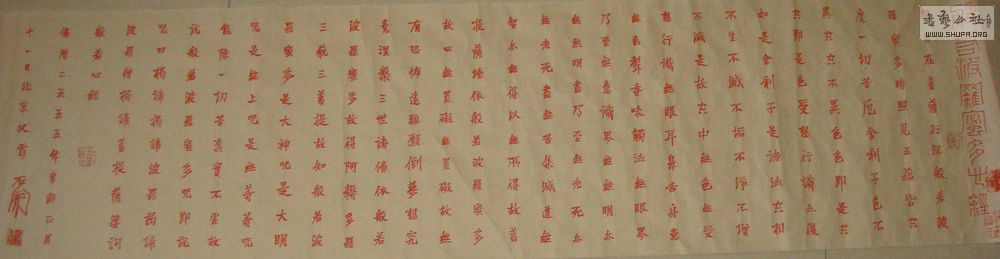 波羅蜜多心經
在菩薩行深般若波
羅蜜多時照見五蘊皆空
度一切苦厄舍利子色不
異空空不異色色即是空
空即是色受想行識亦復
如是舍利子是諸法空相
不生不滅不垢不淨不增
不減是故空中無色無受
想行識無眼耳鼻舌身意
無色聲香味觸法無眼界
乃至無意識界無無明亦
無無明盡乃至無老死亦
無老死盡無苦集滅道無
智亦無得以無所得故菩
提薩埵依般若波羅蜜多
故心無罣礙無罣礙故無
有恐怖遠離顛倒夢想究
竟涅槃三世諸佛依般若
波羅蜜多故得阿耨多羅
三藐三菩提故知般若波
羅蜜多是大神咒是大明
咒是無上咒是無等等咒
能除一切苦真實不虛故
說般若波羅蜜多咒即說
咒曰揭諦揭諦波羅揭諦
波羅僧揭諦菩提薩婆訶
般若心經
佛曆二五五五年辛卯正月
十一日北京
書藝公社
WWW.SHUFA.ORG